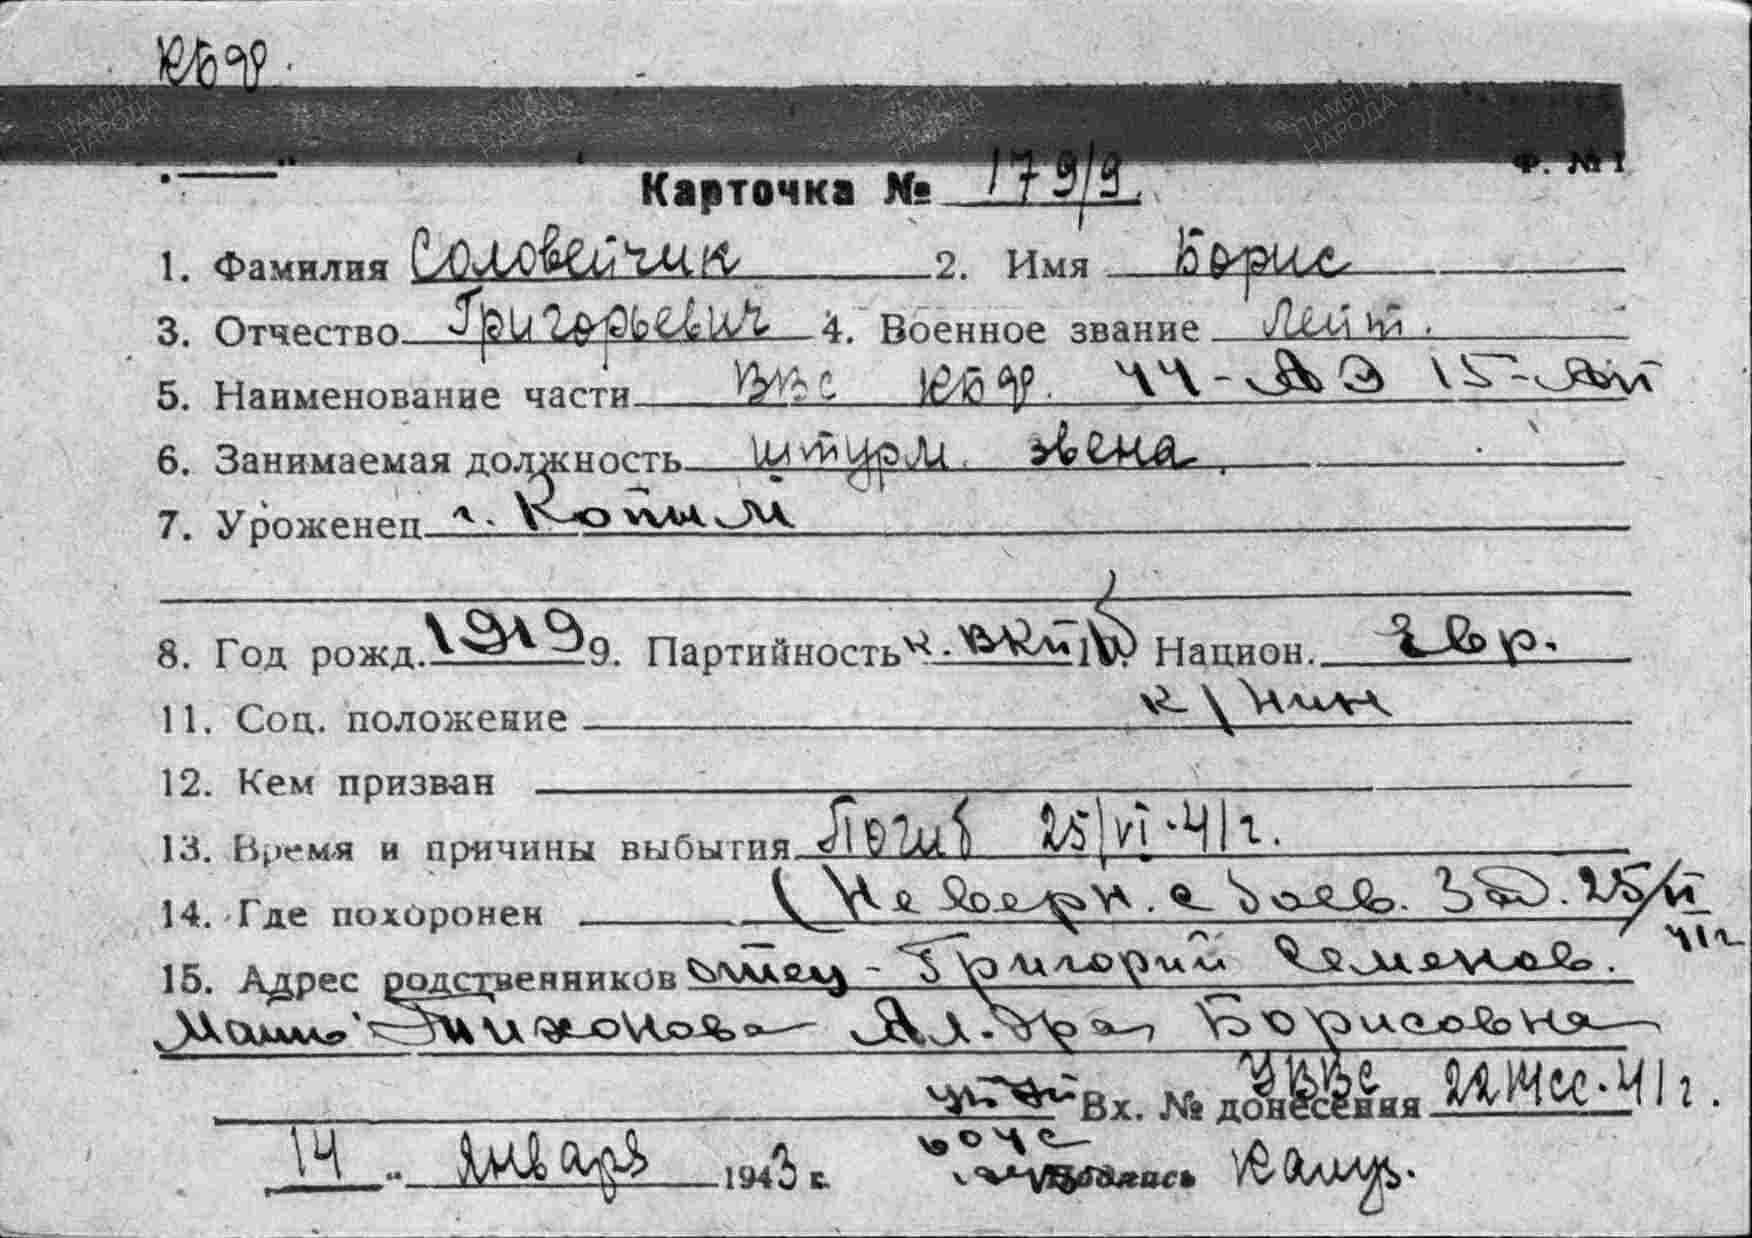 КБФ.
Ф. № 1
Карточка № 179/9.
1. Фамилия Соловейчик 2. Имя Борис
3. Отчество Григорьевич 4. Военное звание лейт.
5. Наименование части ВВС КБФ. 44-АЭ 15-АП
6. Занимаемая должность штурм. звена.
7. Уроженец г. Копыль
8. Год рожд. 1919 9. Партийность к. ВКП(б) Национ. Евр.
11. Соц. положение
12. Кем призван
13. Время и причины выбытия Погиб 25/VI-41г.
14. Где похоронен (Не верн. с боев. зад. 25/VI
41г
15. Адрес родственников отец - Григорий Семенов.
Мать Тихонова Ал-дра Борисовна
УВВС
Вх. № донесения 22 41г.
14 " января 1943 г. Подпись
ПАМЯТЬ НАРОДА
ПАМЯТЬ НАРОДА
ПАМЯТЬ НАРОДА
ПАМЯТЬ НАРОДА